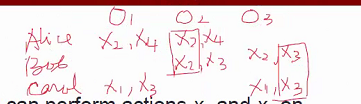 O1 O2 O3
Alice x2, x4 x2, x4
Bob x2, x3 x2, x3
Carol x1, x3 x1, x3
can perform actions x and x on